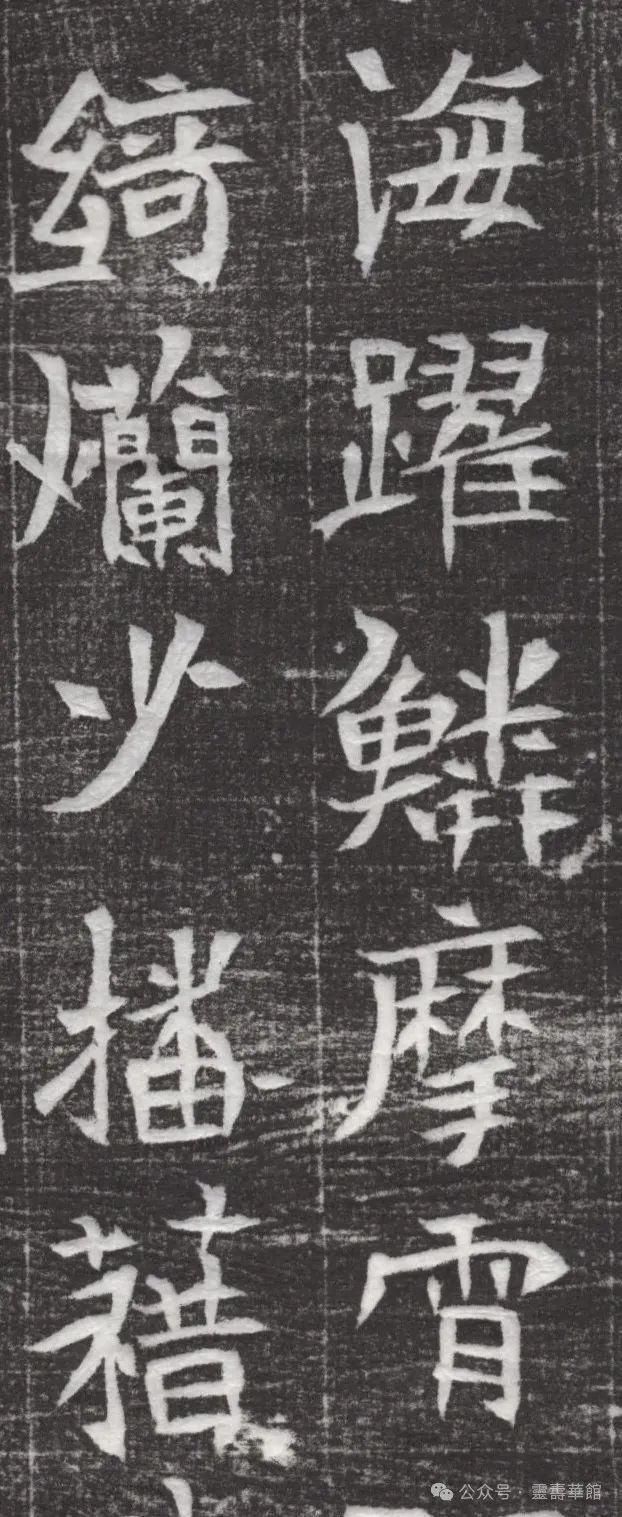 海躍鱗摩霄
綺爛少播藉
公众号·靈壽華館